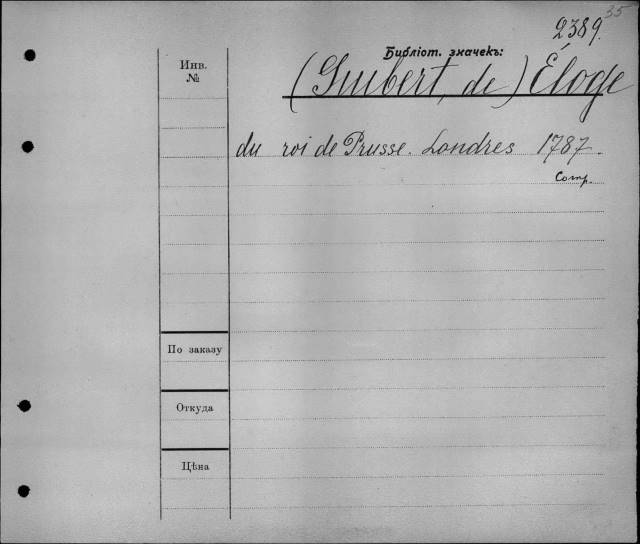 35
2389.
Инв.
№
Библіот. значекъ:
(Guibert, de) Éloge
du roi de Prusse. Londres 1787.
Comp.
По заказу
Откуда
Цѣна